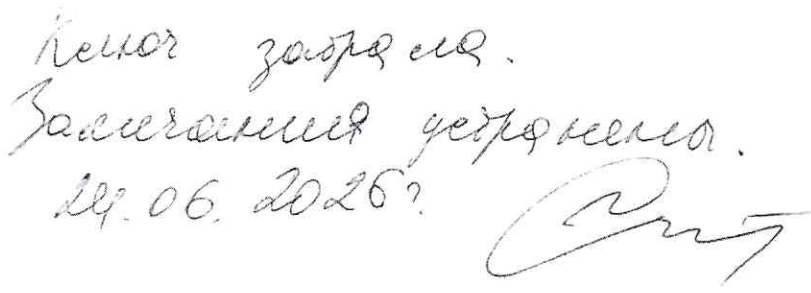 Ключ забрала.
Замечания устранены.
24.06.2026г.